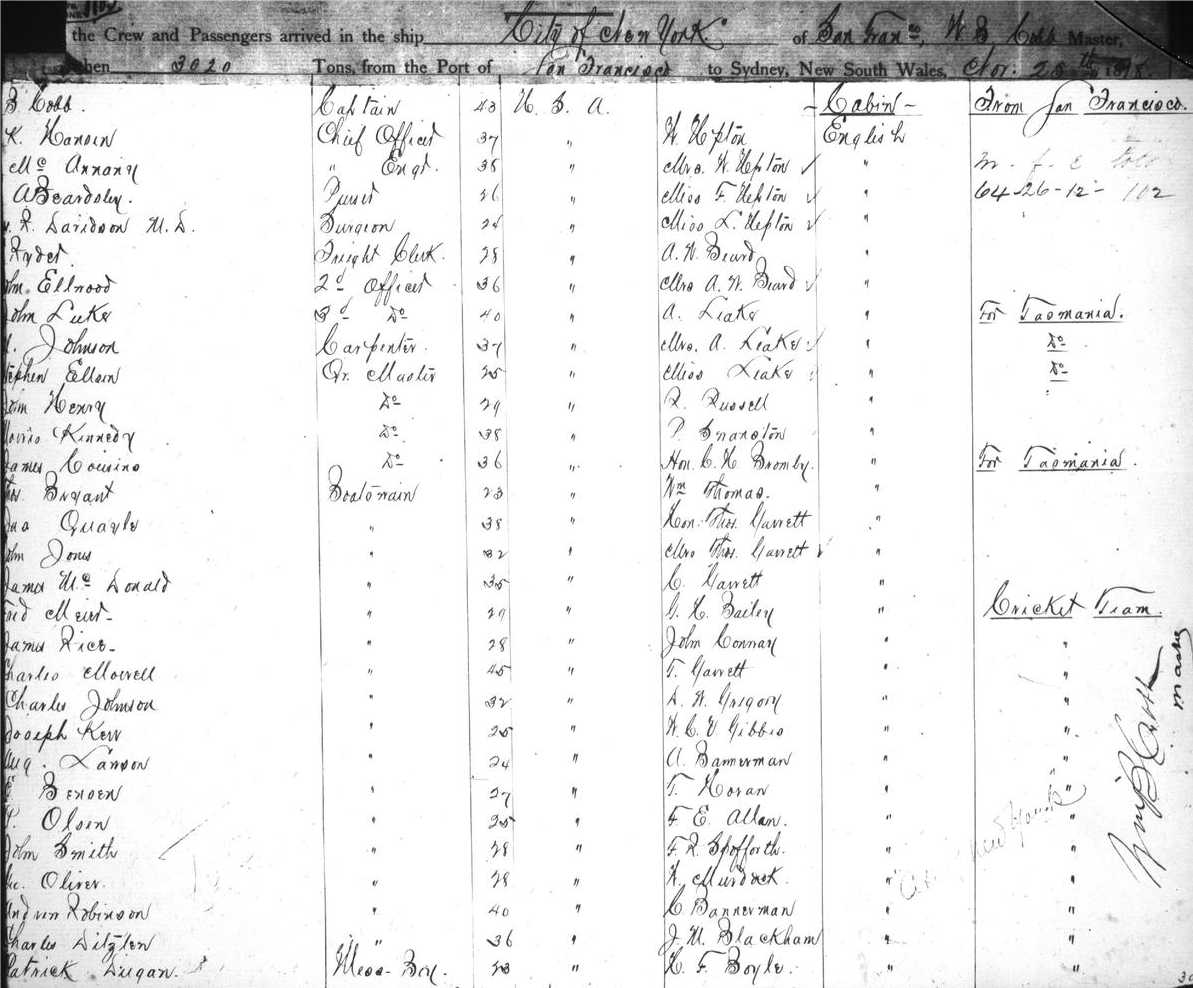 the Crew and Passengers arrived in the ship City of New York of San Franco, W B Cobb Master,
3020 Tons, from the Port of San Francisco to Sydney, New South Wales, Nov. 25th 1878
B Cobb. Captain 43 U. S. A. - Cabin - From San Francisco.
K. Hansen Chief Officer 37 " W. Hepton English
Mc Annany " Engr. 38 " Mrs. W. Hepton ✓ " m. f. c Total
A Beardsley. Purser 26 " Miss F. Hepton ✓ " 64-26-12- 102
R. Davidson M. D. Surgeon 24 " Miss L. Hepton ✓ "
Ryder. Freight Clerk. 28 " A. W. Beard "
Ellwood 2d Officer 36 " Mrs A. W. Beard ✓ "
John Luke 3d Do 40 " A. Leake " For Tasmania.
Johnson Carpenter. 37 " Mrs. A. Leake ✓ " Do
Stephen Ellson Qr. Master 25 " Miss Leake ✓ " Do
John Henry Do 29 " R. Russell "
Morris Kennedy Do 38 " P. "
James Cousins Do 36 " Hon. C. H. Bromby. " For Tasmania.
Bryant Boatswain 23 " Wm Thomas. "
Quayle " 38 " Hon. Thos. Garrett "
John Jones " 32 " Mrs Thos. Garrett ✓ "
James Mc Donald " 35 " C. Garrett "
Fred Meier - " 29 " G. H. Bailey " Cricket Team.
James Rice - " 28 " John Conway " "
Charles Morrell " 45 " T. Garrett " "
Charles Johnson " 32 " D. W. Gregory " "
Joseph Kerr " 25 " W. C. V. Gibbes " "
Aug. Larson " 24 " A. Bannerman " "
Bensen " 27 " T. Horan " "
Olsen " 25 " F. E. Allan. " "
John Smith " 28 " F. R. Spofforth. " "
Oliver. " 28 " W. Murdock. " "
Andrew Robinson " 40 " C Bannerman " "
Charles Ditzlen " 36 " J. M. Blackham " "
Patrick Dugan. Mess-Boy. 23 " H. F. Boyle. " "
Cobb
Master